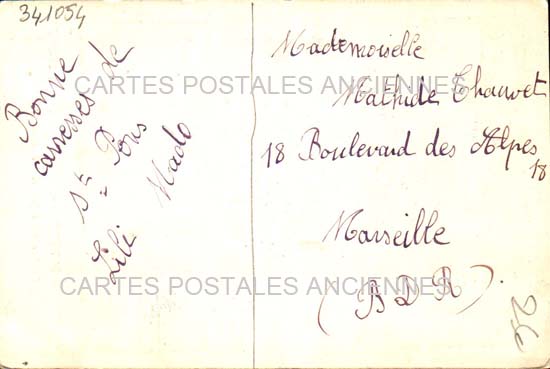 341054
Bonne
caresses de
St Pons
Lili Mado
Mademoiselle
Mathilde Chauvet
18 Boulevard des Alpes
18
Marseille
(B D R).
CARTES POSTALES ANCIENNES
CARTES POSTALES ANCIENNES